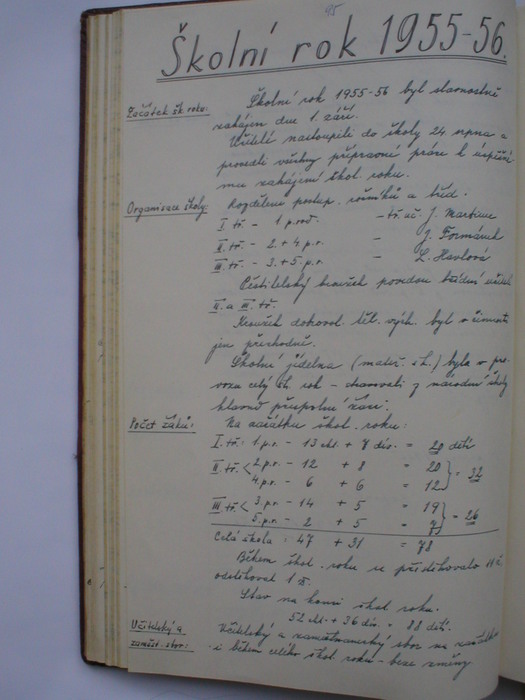 95
Školní rok 1955-56.
Začátek šk. roku: Školní rok 1955-56 byl slavnostně
zahájen dne 1. září.
Učitelé nastoupili do školy 24 srpna a
provedli všechny přípravné práce k úspěšné
mu zahájení škol. roku.
Organisace školy: Rozdělení postup. ročníků a tříd.
I tř. - 1. p. roč. - tř. uč. J. Martinec
II. tř. - 2. + 4 p.r. - J. Formánek
III. tř. - 3. + 5 p.r. - L. Havlová
Pěstitelský kroužek povedou třídní učitelé
II. a III. tř.
Kroužek dobrovol. těl. vých. byl v činnosti
jen přechodně.
Školní jídelna (mateř. šk.) byla v pro
vozu celý šk. rok - stravovali z národní školy
hlavně přespolní žáci.
Počet žáků: Na začátku škol. roku:
I. tř.: 1. p.r. - 13 chl + 7 div. = 20 dětí
II. tř. < 2. p.r. - 12 + 8 = 20 } = 32
4. p.r. - 6 + 6 = 12
III tř. < 3. p.r. - 14 + 5 = 19 } = 26
5. p.r. - 2 + 5 = 7
Celá škola: 47 + 31 = 78
Během škol. roku se přistěhovalo 11 ž.
odstěhoval 1 ž.
Stav na konci škol. roku.
52 chl. + 36 div. = 88 dětí.
Učitelský a zaměst. sbor: Učitelský a zaměstnanecký sbor na začátku
i během celého škol. roku - beze změny